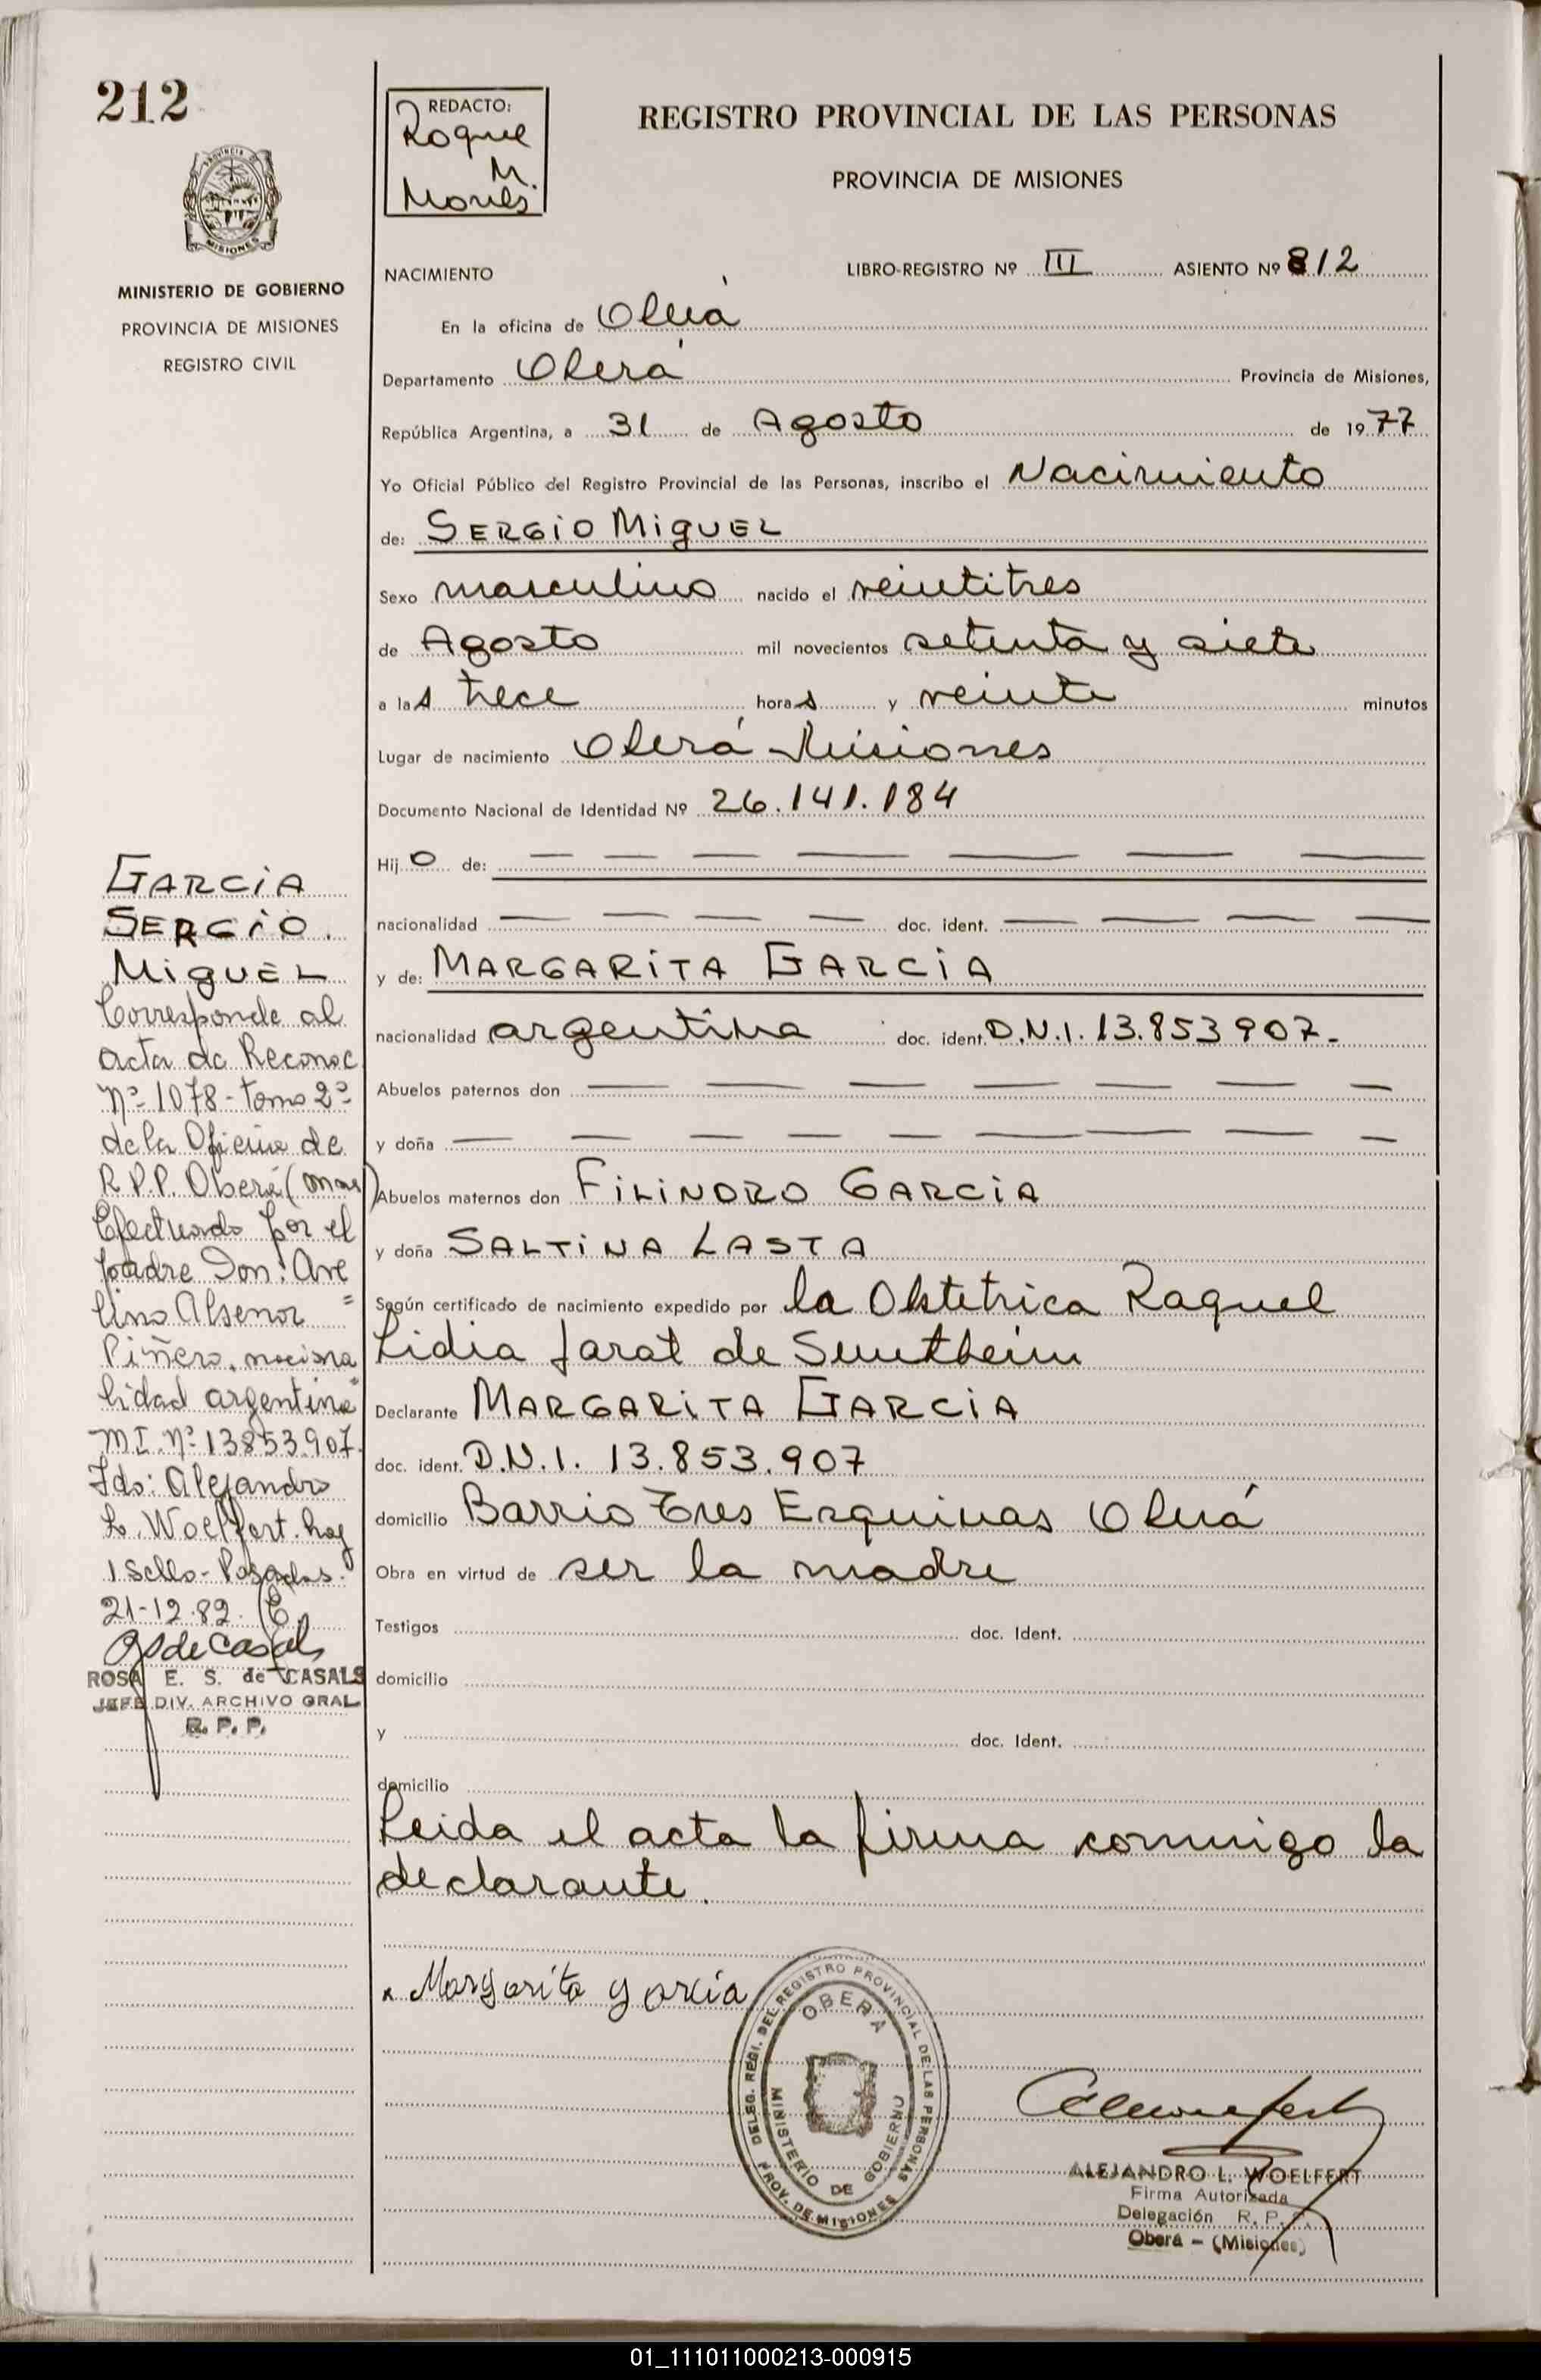 212
REDACTO:
Roque
M.
REGISTRO PROVINCIAL DE LAS PERSONAS
PROVINCIA DE MISIONES
MISIONES
MINISTERIO DE GOBIERNO
PROVINCIA DE MISIONES
REGISTRO CIVIL
NACIMIENTO LIBRO-REGISTRO Nº III ASIENTO Nº 812
En la oficina de Oberá
Departamento Oberá Provincia de Misiones,
República Argentina, a 31 de Agosto de 1977
Yo Oficial Público del Registro Provincial de las Personas, inscribo el Nacimiento
de: SERGIO MIGUEL
Sexo masculino nacido el veintitres
de Agosto mil novecientos setenta y siete
a las trece horas y veinte minutos
Lugar de nacimiento Oberá - Misiones
Documento Nacional de Identidad Nº 26.141.184
Hijo de: — — — — — — —
nacionalidad — — — — doc. ident. — — — —
y de: MARGARITA GARCIA
nacionalidad argentina doc. ident. D.N.I. 13.853907.-
Abuelos paternos don — — — — — — —
y doña — — — — — — — — —
Abuelos maternos don FILINDRO GARCIA
y doña SALTINA LASTA
Según certificado de nacimiento expedido por la Obstetrica Raquel
Lidia Jarat de
Declarante MARGARITA GARCIA
doc. ident. D.N.I. 13.853.907
domicilio Barrio Tres Esquinas Oberá
Obra en virtud de ser la madre
Testigos doc. Ident.
domicilio
y doc. Ident.
domicilio
Leida el acta la firma conmigo la
declarante.
GARCIA
SERGIO
MIGUEL
Corresponde al
acta de Reconoc
Nº 1078 - tomo 2º
de la Oficina de
R.P.P. Oberá (Mnes)
Efectuado por el
padre Don: Ave
lino Alsenor =
Piñero, naciona
lidad argentina
MI. Nº 13853907.
Fdo: Alejandro
L. Woelfert. hay
1 Sello - Posadas.
21-12-82.
ROSA E. S. de CASALS
JEFE DIV. ARCHIVO GRAL
R. P. P.
x Margarita Garcia
DELEG. REGI. DEL REGISTRO PROVINCIAL DE LAS PERSONAS
PROV. DE MISIONES
OBERA
MINISTERIO DE GOBIERNO
ALEJANDRO L. WOELFERT
Firma Autorizada
Delegación R. P. P.
Oberá - (Misiones)
01_111011000213-000915